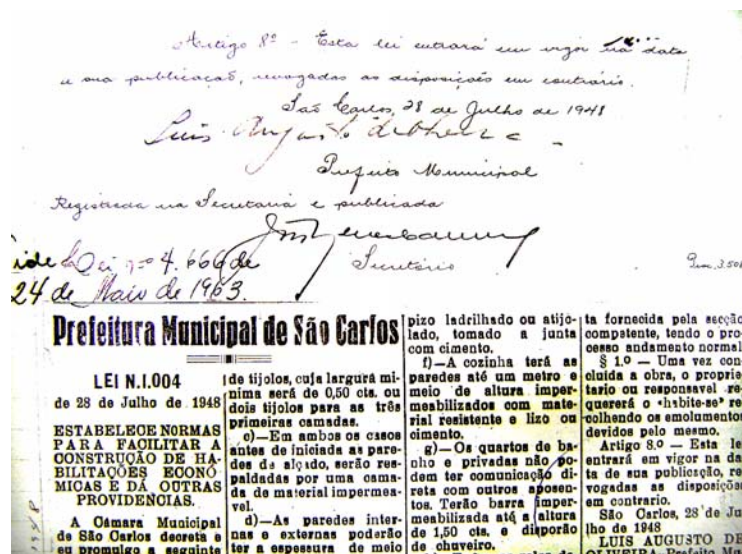 Artigo 8º - Esta lei entrará em vigor na data
e sua publicação, revogadas as disposições em contrário.
São Carlos, 28 de Julho de 1948
Luis Augusto de Oliveira
Prefeito Municipal
Registrada na Secretaria e publicada
Secretário
ide Lei nº 4.666 de
24 de Maio de 1963.
Prefeitura Municipal de São Carlos
LEI N.1.004
de 28 de Julho de 1948
ESTABELECE NORMAS
PARA FACILITAR A
CONSTRUÇÃO DE HA-
BILITAÇÕES ECONÔ
MICAS E DÁ OUTRAS
PROVIDENCIAS.
A Câmara Municipal
de São Carlos decreta e
eu promulgo a seguinte
de tijolos, cuja largura mi-
nima será de 0,50 cts. ou
dois tijolos para as três
primeiras camadas.
c)—Em ambos os casos
antes de iniciada as pare-
des de alçado, serão res-
paldadas por uma cama-
da de material impermea-
vel.
d)—As paredes inter-
nas e externas poderão
ter a espessura de meio
pizo ladrilhado ou atijo-
lado, tomado a junta
com cimento.
f)—A cozinha terá as
paredes até um metro e
meio de altura imper-
meabilizados com mate-
rial resistente e lizo ou
cimento.
g)—Os quartos de ba-
nho e privadas não po-
dem ter comunicação di-
reta com outros aposen-
tos. Terão barra imper-
meabilizada até a altura
de 1,50 cts. e disporão
de chuveiro.
ta fornecida pela secção
competente, tendo o pro-
cesso andamento normal
§ 1.0 — Uma vez con-
cluida a obra, o proprie-
tario ou responsavel re-
quererá o «habite-se» re-
colhendo os emolumentos
devidos pelo mesmo.
Artigo 8.0 — Esta le
entrará em vigor na da
ta de sua publicação, re
vogadas as disposições
em contrario.
São Carlos, 28 de Ju
lho de 1948
LUIS AUGUSTO DE
OLIVEIRA—Prefeito Mu